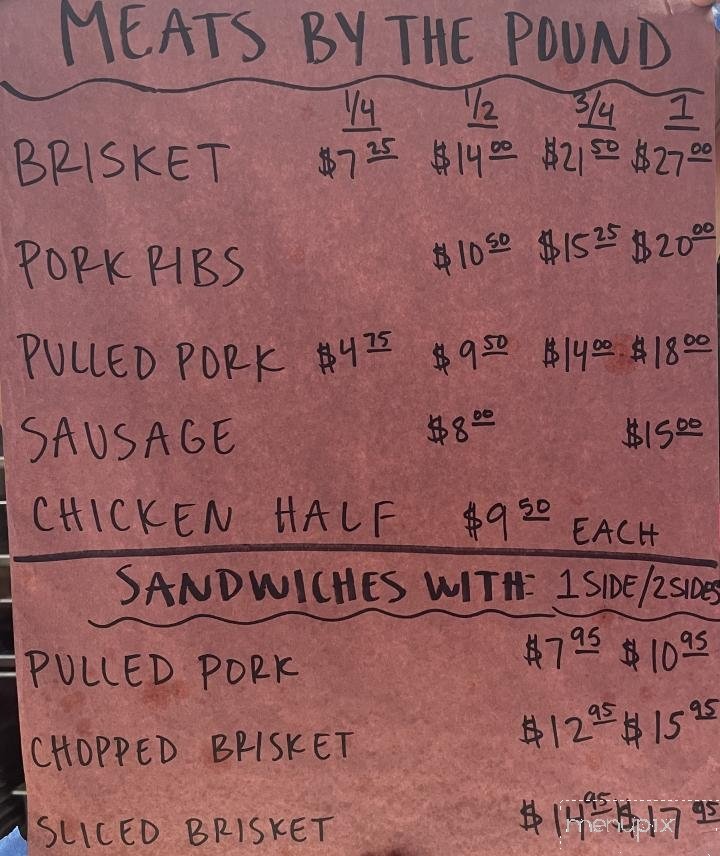 MEATS BY THE POUND
1/4 1/2 3/4 1
BRISKET $7.25 $14.00 $21.50 $27.00
PORK RIBS $10.50 $15.25 $20.00
PULLED PORK $4.75 $9.50 $14.00 $18.00
SAUSAGE $8.00 $15.00
CHICKEN HALF $9.50 EACH
SANDWICHES WITH: 1 SIDE/2 SIDES
PULLED PORK $7.95 $10.95
CHOPPED BRISKET $12.95 $15.95
SLICED BRISKET $14.95 $17.95
menupix